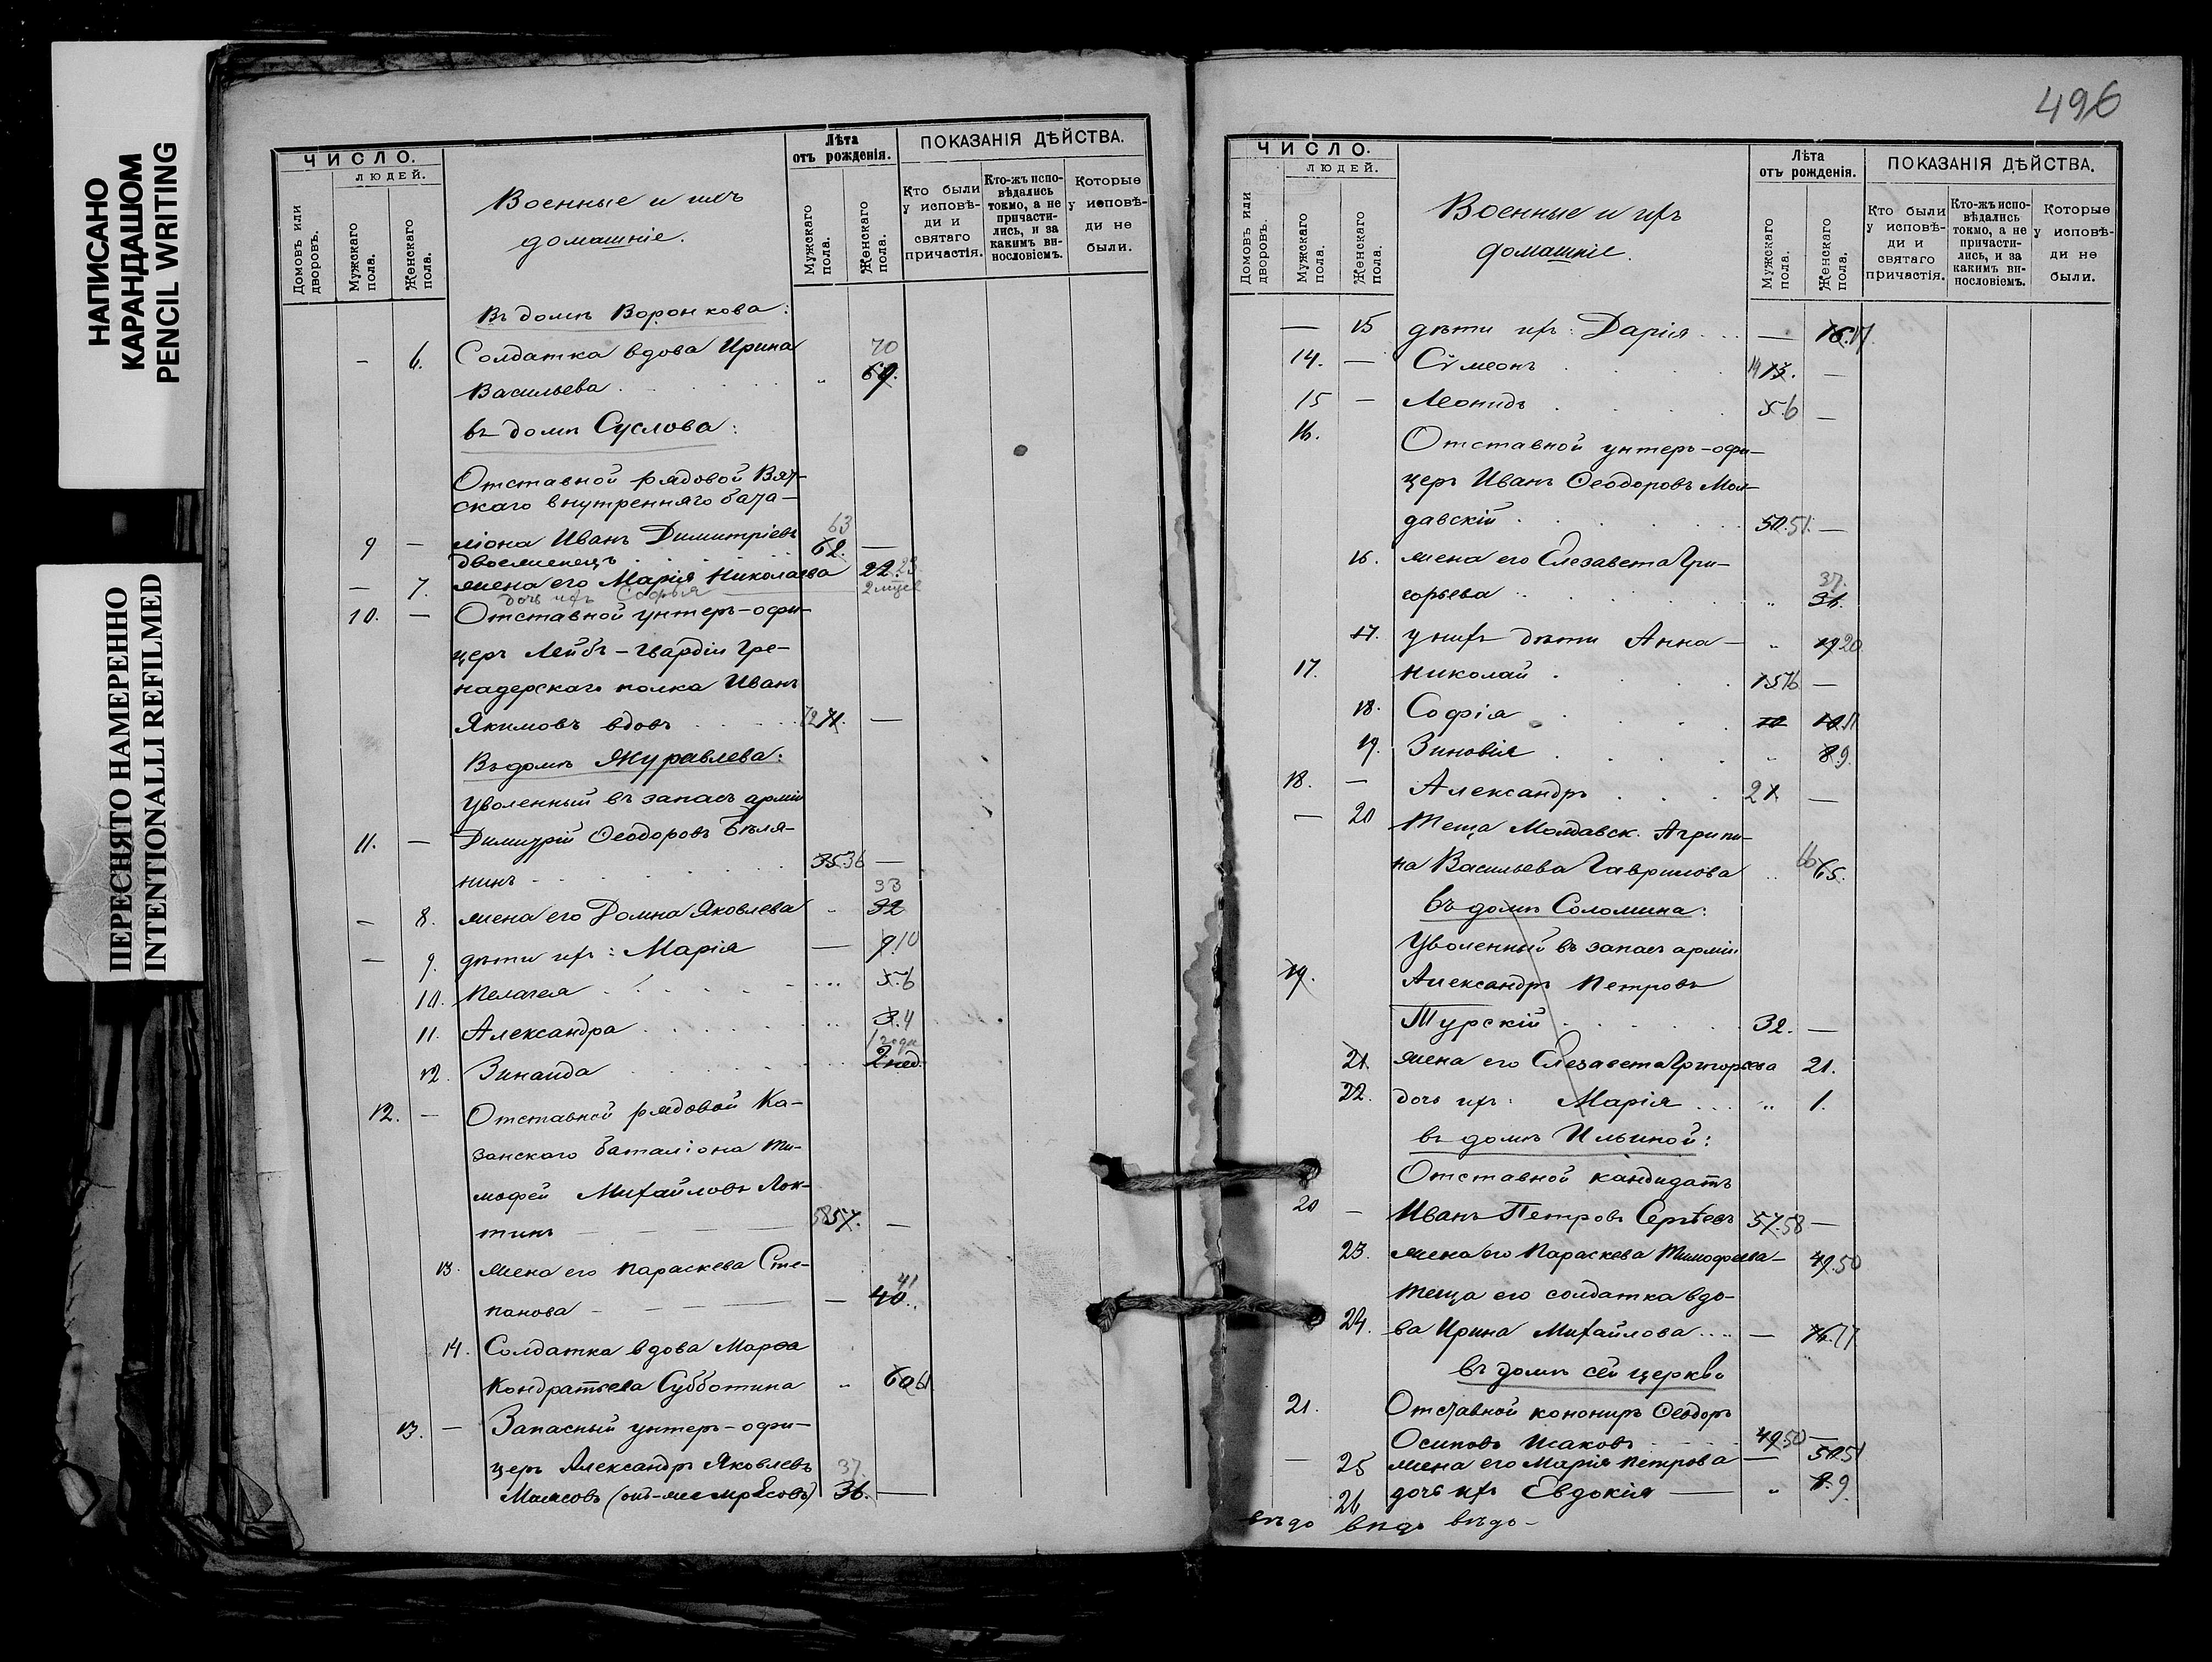 НАПИСАНО
КАРАНДАШОМ
PENCIL WRITING
ПЕРЕСНЯТО НАМЕРЕННО
INTENTIONALLI REFILMED
ЧИСЛО.
ЛЮДЕЙ.
Домовъ или дворовъ.
Мужскаго пола.
Женскаго пола.
Военные и ихъ
домашніе.
Лѣта
отъ рожденія.
Мужскаго пола.
Женскаго пола.
ПОКАЗАНІЯ ДѢЙСТВА.
Кто были у исповѣди и святаго причастія.
Кто-жъ исповѣдались токмо, а не причастились, и за какимъ винословіемъ.
Которые у исповѣди не были.
Въ домѣ Воронкова:
– 6. Солдатка вдова Ирина 70
Васильева . . . „ 69.
въ домѣ Суслова:
Отставной рядовой Вят-
скаго внутренняго бата-
9 — ліона Иванъ Димитріевъ 63
62. —
— 7. жена его Марія Николаева 22. 23
дочь ихъ Софья
10. — Отставной унтеръ-офи-
церъ Лейбъ-Гвардіи Гре-
надерскаго полка Иванъ
Якимовъ вдовъ . . . 72 71. —
Въ домѣ Журавлева:
Уволенный въ запасъ арміи
11. — Димитрій Ѳеодоровъ Бѣля-
нинъ . . . 35 36 —
33
– 8. жена его Домна Яковлева „ 32
— 9. дѣти ихъ: Марія — 9. 10
10. Пелагея . . . 5. 6
11. Александра . . . 3. 4
1 годъ
12. Зинаида . . . 2 нед.
12. — Отставной рядовой Ка-
занскаго баталіона Ти-
мофей Михайловъ Лок-
тинъ — — 58 57. —
13. жена его Параскева Сте-
41
панова — — — 40.
14. Солдатка вдова Марѳа
Кондратьева Субботина „ 60 61
13. — Запасный унтеръ-офи-
церъ Александръ Яковлевъ 37.
36. —
496
ЧИСЛО.
ЛЮДЕЙ.
Домовъ или дворовъ.
Мужскаго пола.
Женскаго пола.
Военные и ихъ
домашніе.
Лѣта
отъ рожденія.
Мужскаго пола.
Женскаго пола.
ПОКАЗАНІЯ ДѢЙСТВА.
Кто были у исповѣди и святаго причастія.
Кто-жъ исповѣдались токмо, а не причастились, и за какимъ винословіемъ.
Которые у исповѣди не были.
— 15 дѣти ихъ: Дарія . . . — 16. 17.
14. — Сѵмеонъ . . . 14 13. —
15 — Леонидъ . . . 5 6 —
16. Отставной унтеръ-офи-
церъ Иванъ Ѳеодоровъ Мол-
давскій . . . 50. 51. —
16. жена его Елезавета Гри-
37.
горьева . . . „ 36.
17. у нихъ дѣти Анна — „ 19 20
17. Николай . . . 15 16 —
18. Софія . . . 10 10 11
19. Зиновія . . . „ 8 9.
18. — Александръ . . . 2 1. —
— 20 Теща Молдавск. Агрипи-
на Васильева Гаврилова . . 66 65.
Въ домѣ Соломина:
Уволенный въ запасъ арміи
19. Александръ Петровъ
Турскій . . . 32. —
21. жена его Елезавета Григорьева 21.
22. дочь ихъ: Марія . . . „ 1.
въ домѣ Ильиной:
Отставной кандидатъ
20 — Иванъ Петровъ Сергѣевъ 57. 58 —
23. жена его Параскева Тимофеева — 49. 50
Теща его солдатка вдо-
24. ва Ирина Михайлова . . . . — 76. 77
въ домѣ сей церкви
21. Отставной конониръ Ѳеодоръ
Осиповъ Исаковъ 49 50 —
— 25 жена его Марія Петрова — 50 51
26 дочь ихъ Евдокія — „ 8. 9.